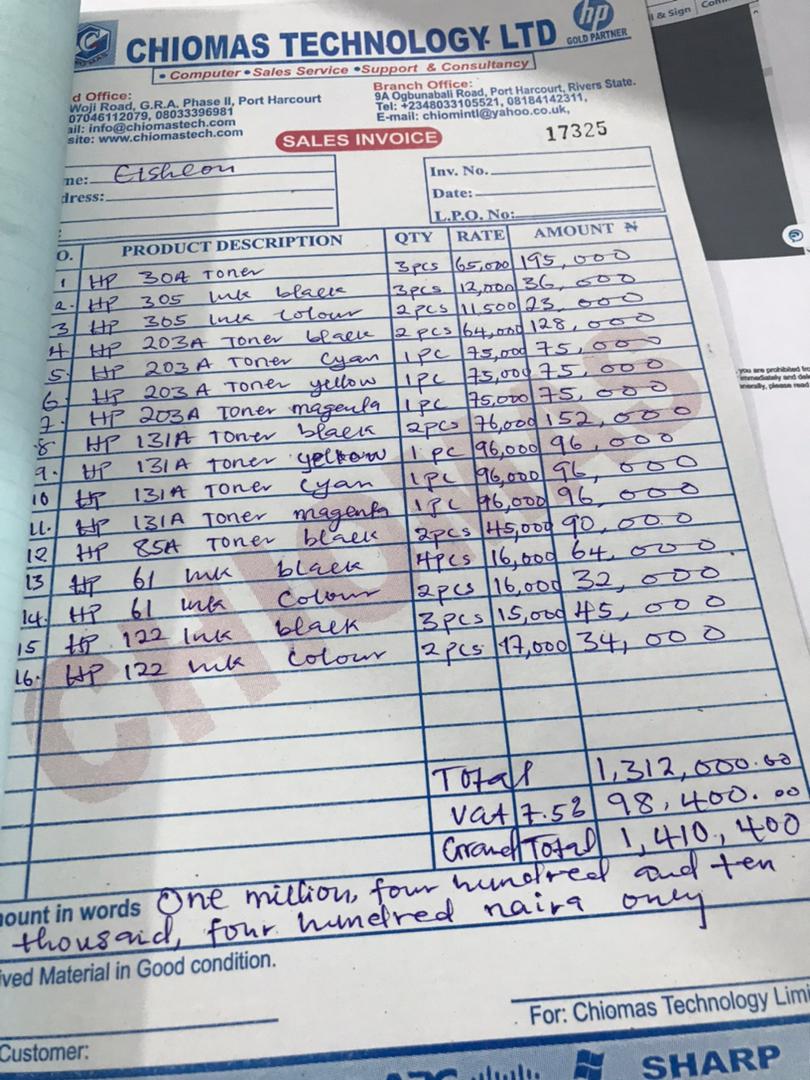 CHIOMAS TECHNOLOGY LTD
hp
GOLD PARTNER
• Computer • Sales Service • Support & Consultancy
d Office:
Woji Road, G.R.A. Phase II, Port Harcourt
07046112079, 08033396981
ail: info@chiomastech.com
site: www.chiomastech.com
Branch Office:
9A Ogbunabali Road, Port Harcourt, Rivers State.
Tel: +2348033105521, 08184142311,
E-mail: chiomintl@yahoo.co.uk,
SALES INVOICE
17325
me:
dress:
Inv. No.
Date:
L.P.O. No:
O. PRODUCT DESCRIPTION QTY RATE AMOUNT ₦
1 HP 30A Toner 3pcs 65,000 195,000
2. HP 305 Ink black 3pcs 12,000 36,000
3 HP 305 Ink colour 2pcs 11,500 23,000
4. HP 203A Toner black 2pcs 64,000 128,000
5. HP 203A Toner cyan 1pc 75,000 75,000
6. HP 203A Toner yellow 1pc 75,000 75,000
7. HP 203A Toner magenta 1pc 75,000 75,000
8. HP 131A Toner black 2pcs 76,000 152,000
9. HP 131A Toner yellow 1pc 96,000 96,000
10 HP 131A Toner cyan 1pc 96,000 96,000
11. HP 131A Toner magenta 1pc 96,000 96,000
12 HP 85A Toner black 2pcs 45,000 90,000
13 HP 61 Ink black 4pcs 16,000 64,000
14. HP 61 Ink Colour 2pcs 16,000 32,000
15 HP 122 Ink black 3pcs 15,000 45,000
16. HP 122 Ink colour 2pcs 17,000 34,000
CHIOMAS
Total 1,312,000.00
Vat 7.5% 98,400.00
Grand Total 1,410,400
ount in words One million, four hundred and ten
thousaid, four hundred naira only
ived Material in Good condition.
For: Chiomas Technology Limi
Customer:
SHARP
l & Sign
you are prohibited fro
immediately and del
nerally, please read